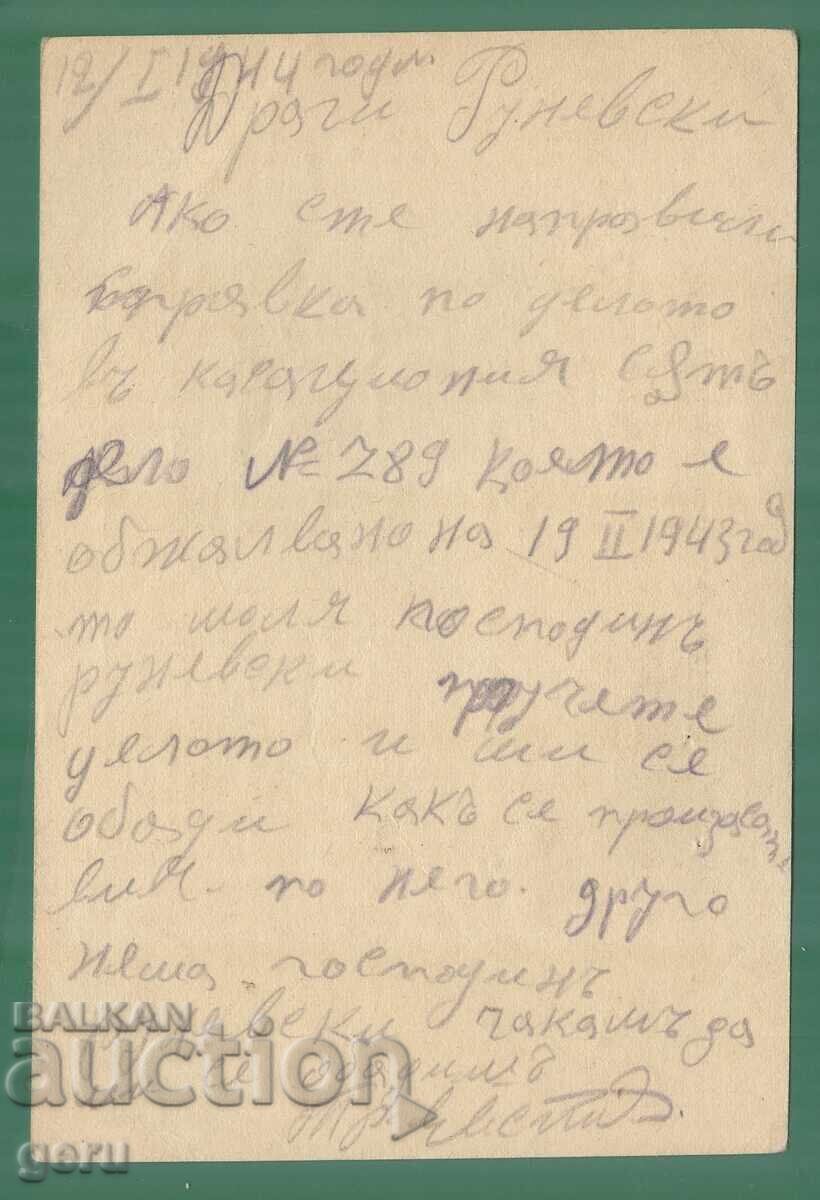 12/ I 1944 годи
Драги Руневски
Ако сте направили
справка по делото
въ касационния сѫтъ
дело № 789 която е
обжалвано на 19 II 1943 год
то моля господинъ
руневски проучете
делото и ми се
обади какъ се
по него. друго
нема господинъ
руневски чакамъ да
ми се обадимъ
BALKAN
auction
geru